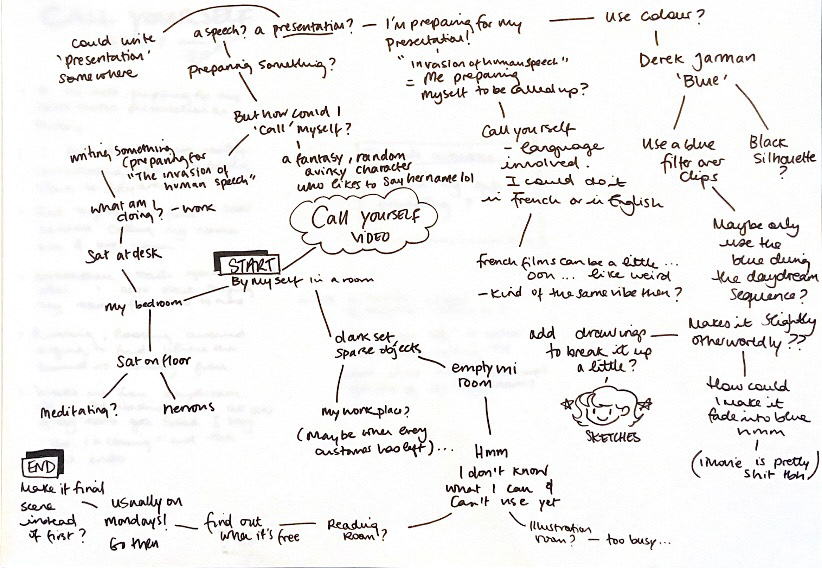 Call yourself
VIDEO
START
By myself in a room
my bedroom
Sat at desk
what am I
doing? - work
writing something
(preparing for
"The invasion of
human speech"
But how could I
'call' myself?
a fantasy, random
quirky character
who likes to say her name lol
Preparing something?
a speech? a presentation?
could write
'presentation'
somewhere
I'm preparing for my
presentation!
"invasion of human speech"
= Me preparing
myself to be called up?
use colour?
Derek Jarman
'Blue'
Use a blue
filter over
clips
Black
Silhouette
?
Call yourself
- language
involved.
I could do it
in French or in English
French films can be a little...
ooh... like weird
- kind of the same vibe then?
Maybe only
use the
blue during
the daydream
sequence?
Makes it slightly
otherworldly??
add drawings
to break it up
a little?
SKETCHES
How could
I make it
fade into blue
hmm
(iMovie is pretty
shit tbh)
Sat on floor
Meditating?
nervous
dark set
sparse objects
my work place?
(Maybe when every
customer has left)...
empty uni
room
Hmm
I don't know
what I can &
can't use yet
Illustration
room? - too busy...
Reading
Room!?
find out
when it's free
usually on
Mondays!
Go then
END
Make it final
scene
instead
of first?